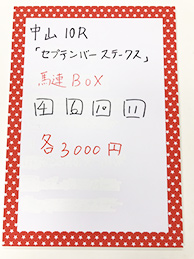 中山10R
「セプテンバーステークス」
馬連BOX
4 6 10 11
各3000円